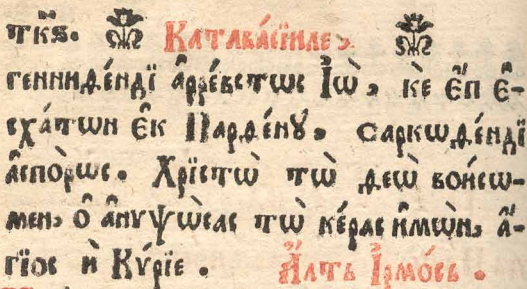 ткѕ҃. Катавасїиле,
геннидéндї а҆ррéвстѡс І҆ѡ̀, кѐ є҆́п є҆-
схáтѡн є҆́к Пардéнꙋ, саркѡдéндї
а҆спóрѡс. Хрїстѡ̀ тѡ̀ деѡ̀ вои́сѡ-
мен, ѻ҆̀ а҆нѵψѡ́сас тѡ̀ кéрас и҆мѡ̀н, а҆́-
гїос и҆̀ Кѵ́рїе. А҆́лть І҆рмóсь.